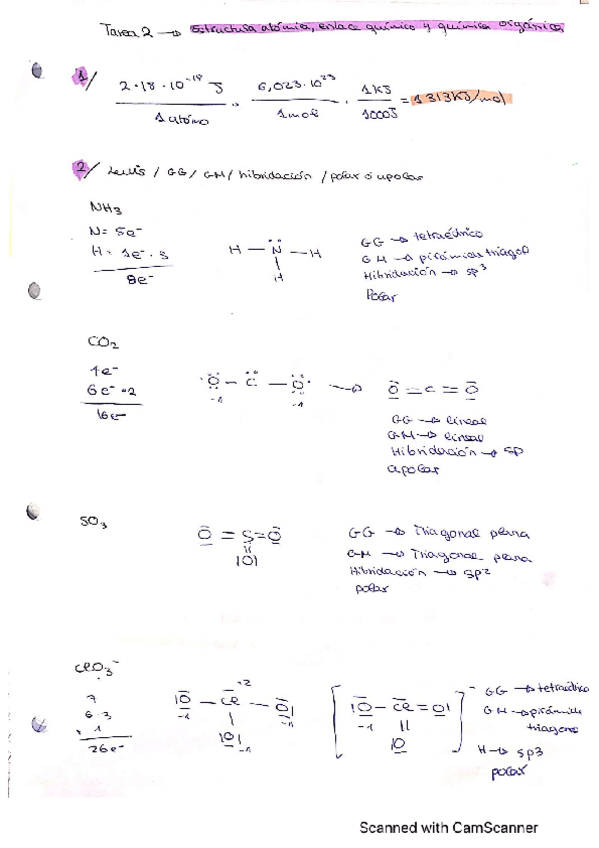 Tarea 2 → Estructura atómica, enlace químico y química orgánica
1/ 2.18·10⁻¹⁸ J / 1 átomo · 6,023·10²³ / 1mol · 1KJ / 1000J = 1313KJ/mol
2/ Lewis / GG / GM / hibridación / polar o apolar
NH₃
N = 5e⁻
H = 1e⁻ · 3
8e⁻
H — N — H
H
GG → tetraédrico
GM → pirámide triagol
Hibridación → sp³
Polar
CO₂
4e⁻
6e⁻ ·2
16e⁻
O — C — O → O = C = O
-1 -1
GG → lineal
GM → lineal
Hibridación → sp
apolar
SO₃
O = S = O
||
|O|
GG → Triagonal plana
GM → Triagonal plana
Hibridación → sp²
polar
ClO₃⁻
7
6·3
+ 1
26e⁻
+2
|O — Cl — O|
-1 | -1
|O| -1
[ |O — Cl = O| ]⁻
-1 ||
|O
GG → tetraédrico
GM → pirámide
triagono
H → sp3
polar
Scanned with CamScanner